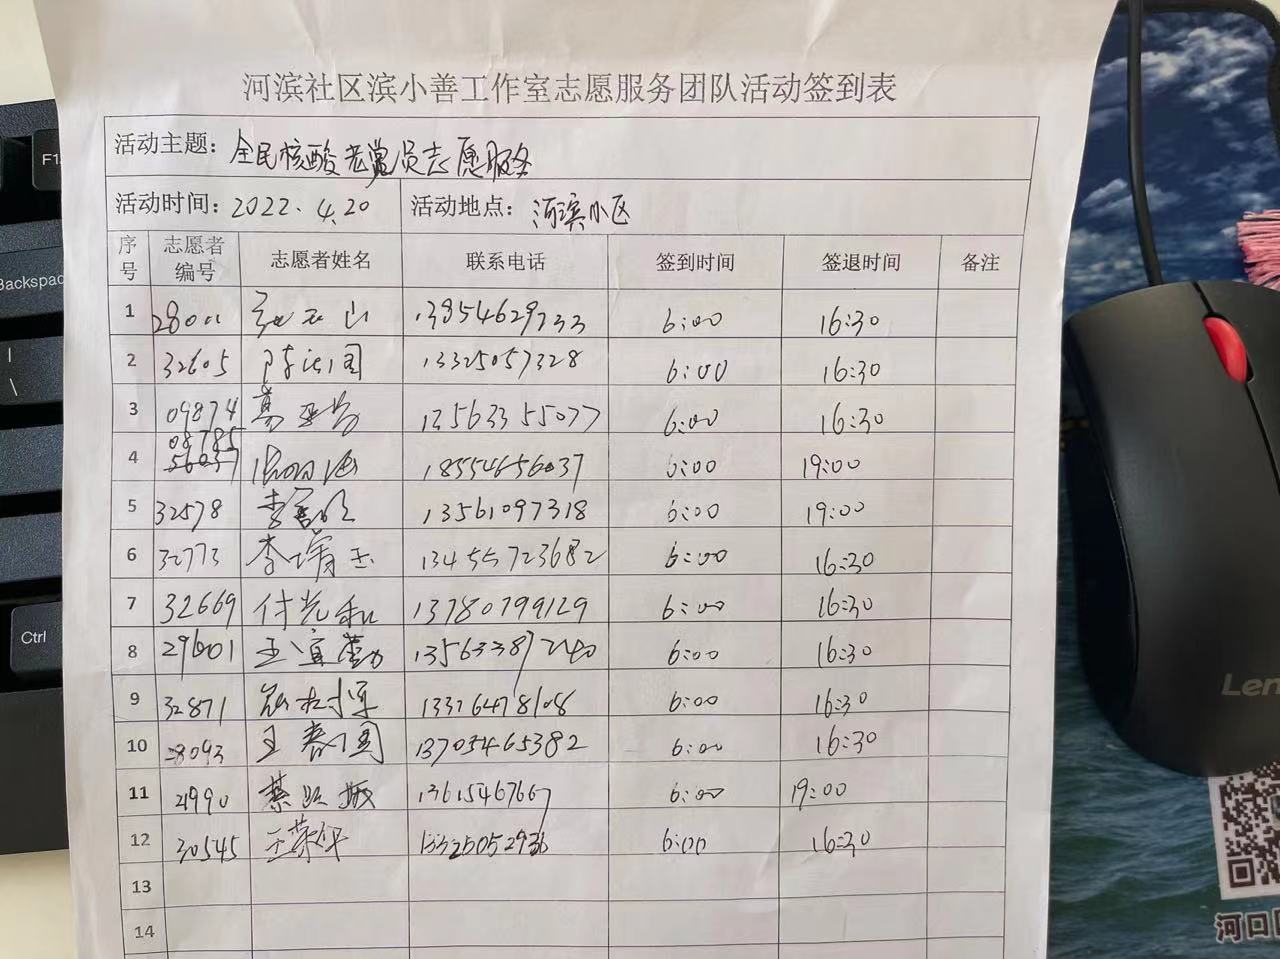 河滨社区滨小善工作室志愿服务团队活动签到表
活动主题：全民核酸老党员志愿服务
活动时间：2022.4.20 活动地点：河滨小区
序号 志愿者编号 志愿者姓名 联系电话 签到时间 签退时间 备注
1 6:00 16:30
2 32605 13325057328 6:00 16:30
3 09874 13563355077 6:00 16:30
4 08785 56037 18554656037 6:00 19:00
5 32578 13561097318 6:00 19:00
6 32773 13455723682 6:00 16:30
7 32669 付光和 13780799129 6:00 16:30
8 王宜营 6:00 16:30
9 32871 6:00 16:30
10 王春国 13705465382 6:00 16:30
11 21990 6:00 19:00
12 30545 6:00 16:30
13
14
F1
Backspac
\
Ctrl
Len
河口